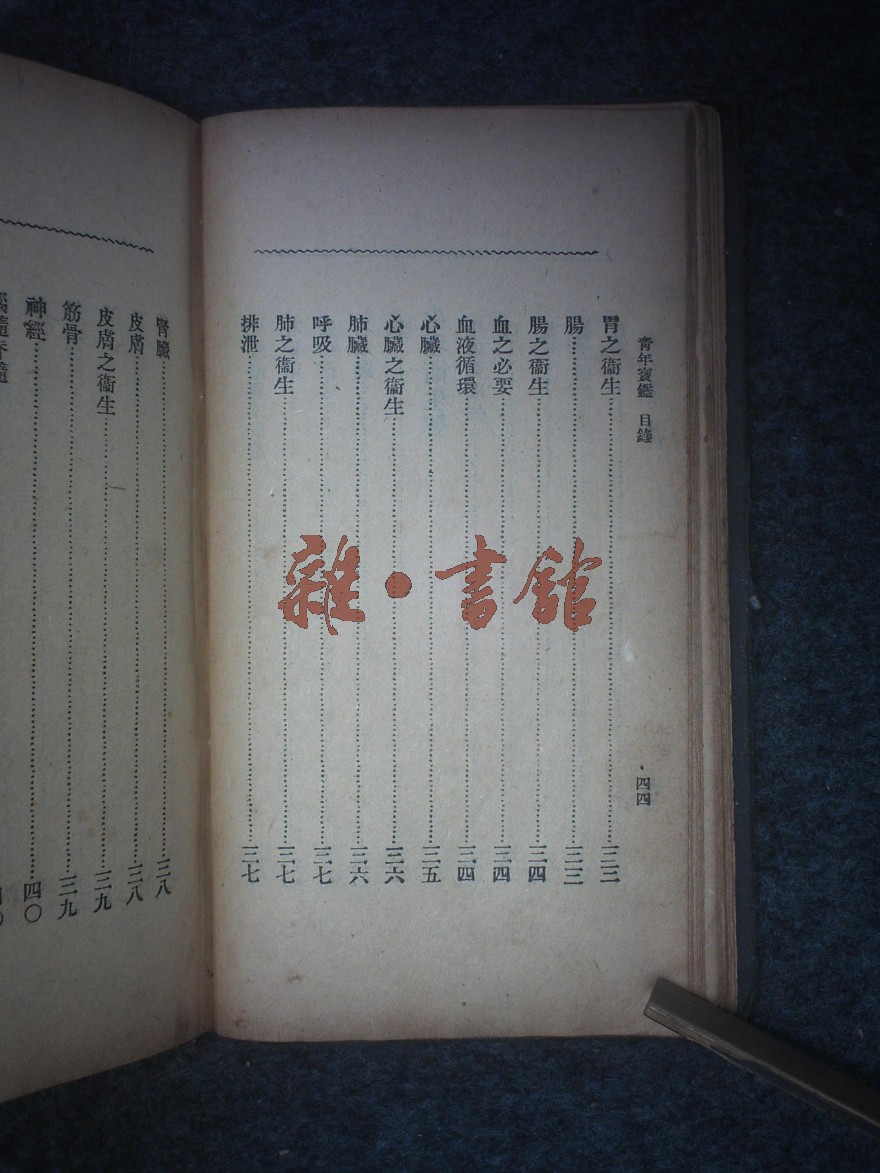 青年寶鑑 目錄
四四
胃之衞生……三三
腸……三三
腸之衞生……三四
血之必要……三四
血液循環……三四
心臟……三五
心臟之衞生……三六
肺臟……三六
呼吸……三七
肺之衞生……三七
排泄……三七
腎臟……三八
皮膚……三八
皮膚之衞生……三九
筋骨……三九
神經……四〇
雜·書館